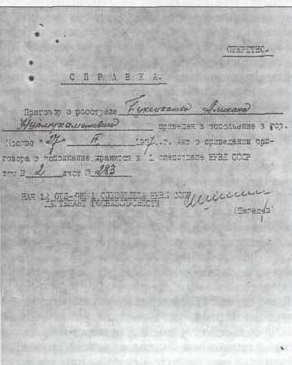 СЕКРЕТНО.
СПРАВКА.
Приговор о расстреле Букейханова Алихана
Нурмухамедовича приведен в исполнение в гор.
Москве "27" IX 1937 г. Акт о приведении при-
говора в исполнение хранится в 1 спецотделе НКВД СССР
том № 2 лист № 263
НАЧ 12 ОТД-НИЯ 1 СПЕЦОТДЕЛА НКВД СССР
ЛЕЙТЕНАНТ ГОСБЕЗОПАСНОСТИ
(Шевелев)